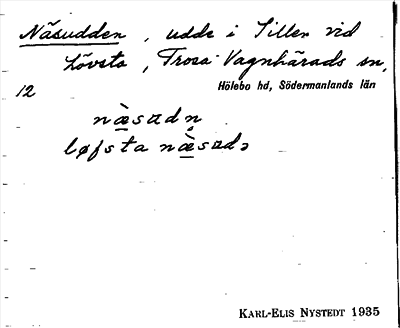 Näsudden, udde i Sillen vid
Lövsta, Trosa-Vagnhärads sn,
12 Hölebo hd, Södermanlands län
næ̀sɑdn̥
løfsta næ̀sɑdə
KARL-ELIS NYSTEDT 1935